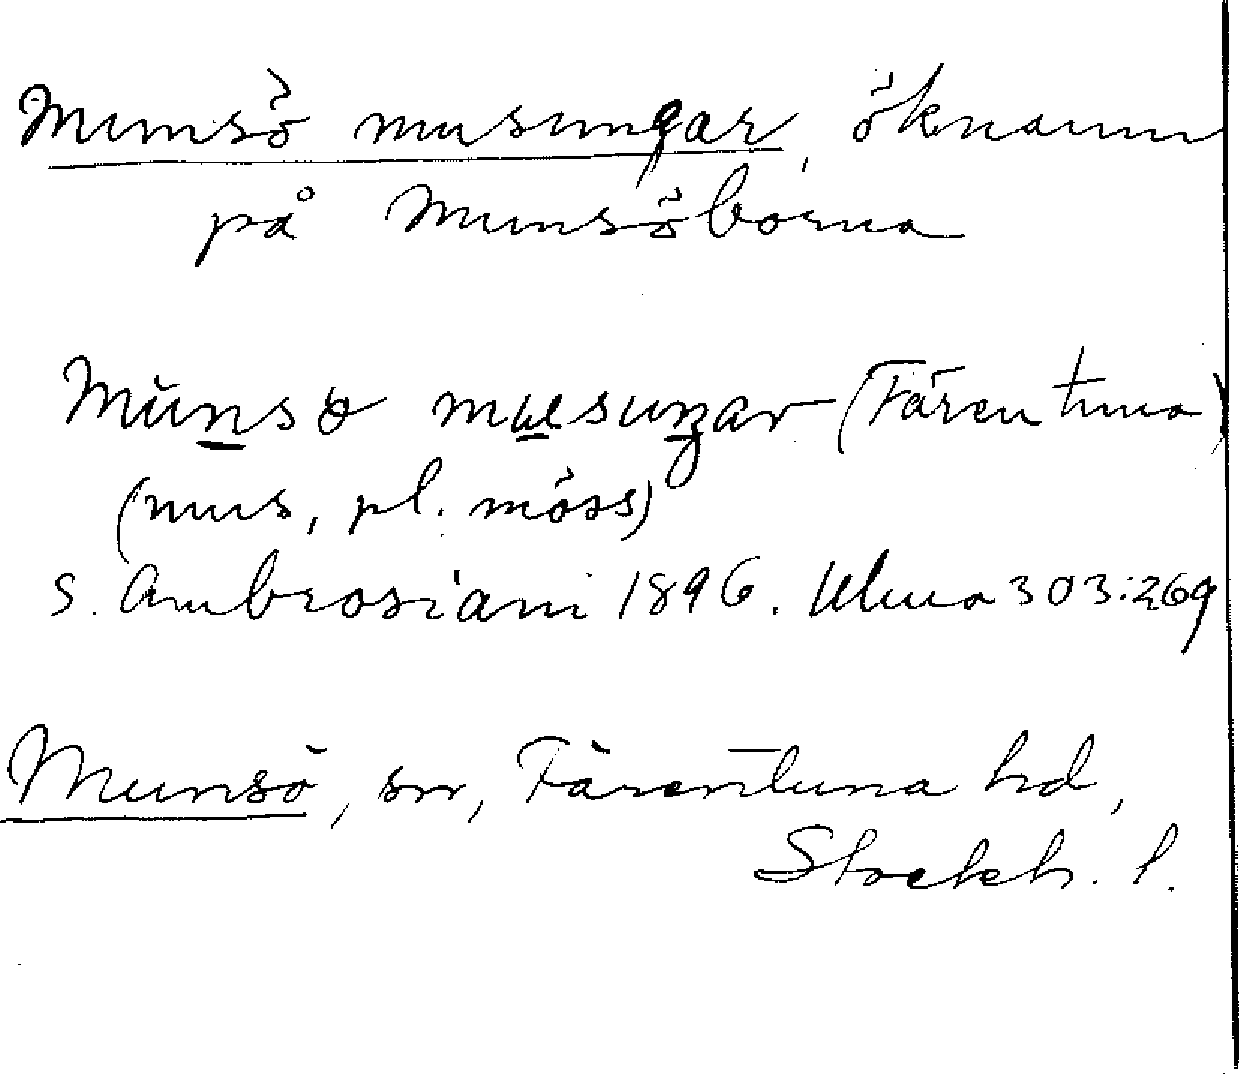 Munsö musungar, öknamn
på Munsöborna
Munsö musuŋar (Färentuna)
(mus, pl. möss)
S. Ambrosiani 1896. Ulma 303:269
Munsö, sn, Färentuna hd,
Stockh. l.